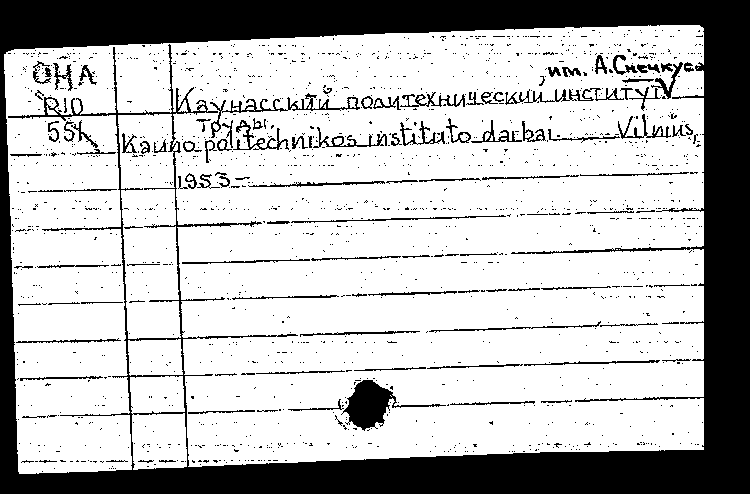 ОНА
им. А. Снечкуса
R10
Каунасский политехнический институт
55k
Труды.
Kauno politechnikos instituto darbai. Vilnius,
1953-